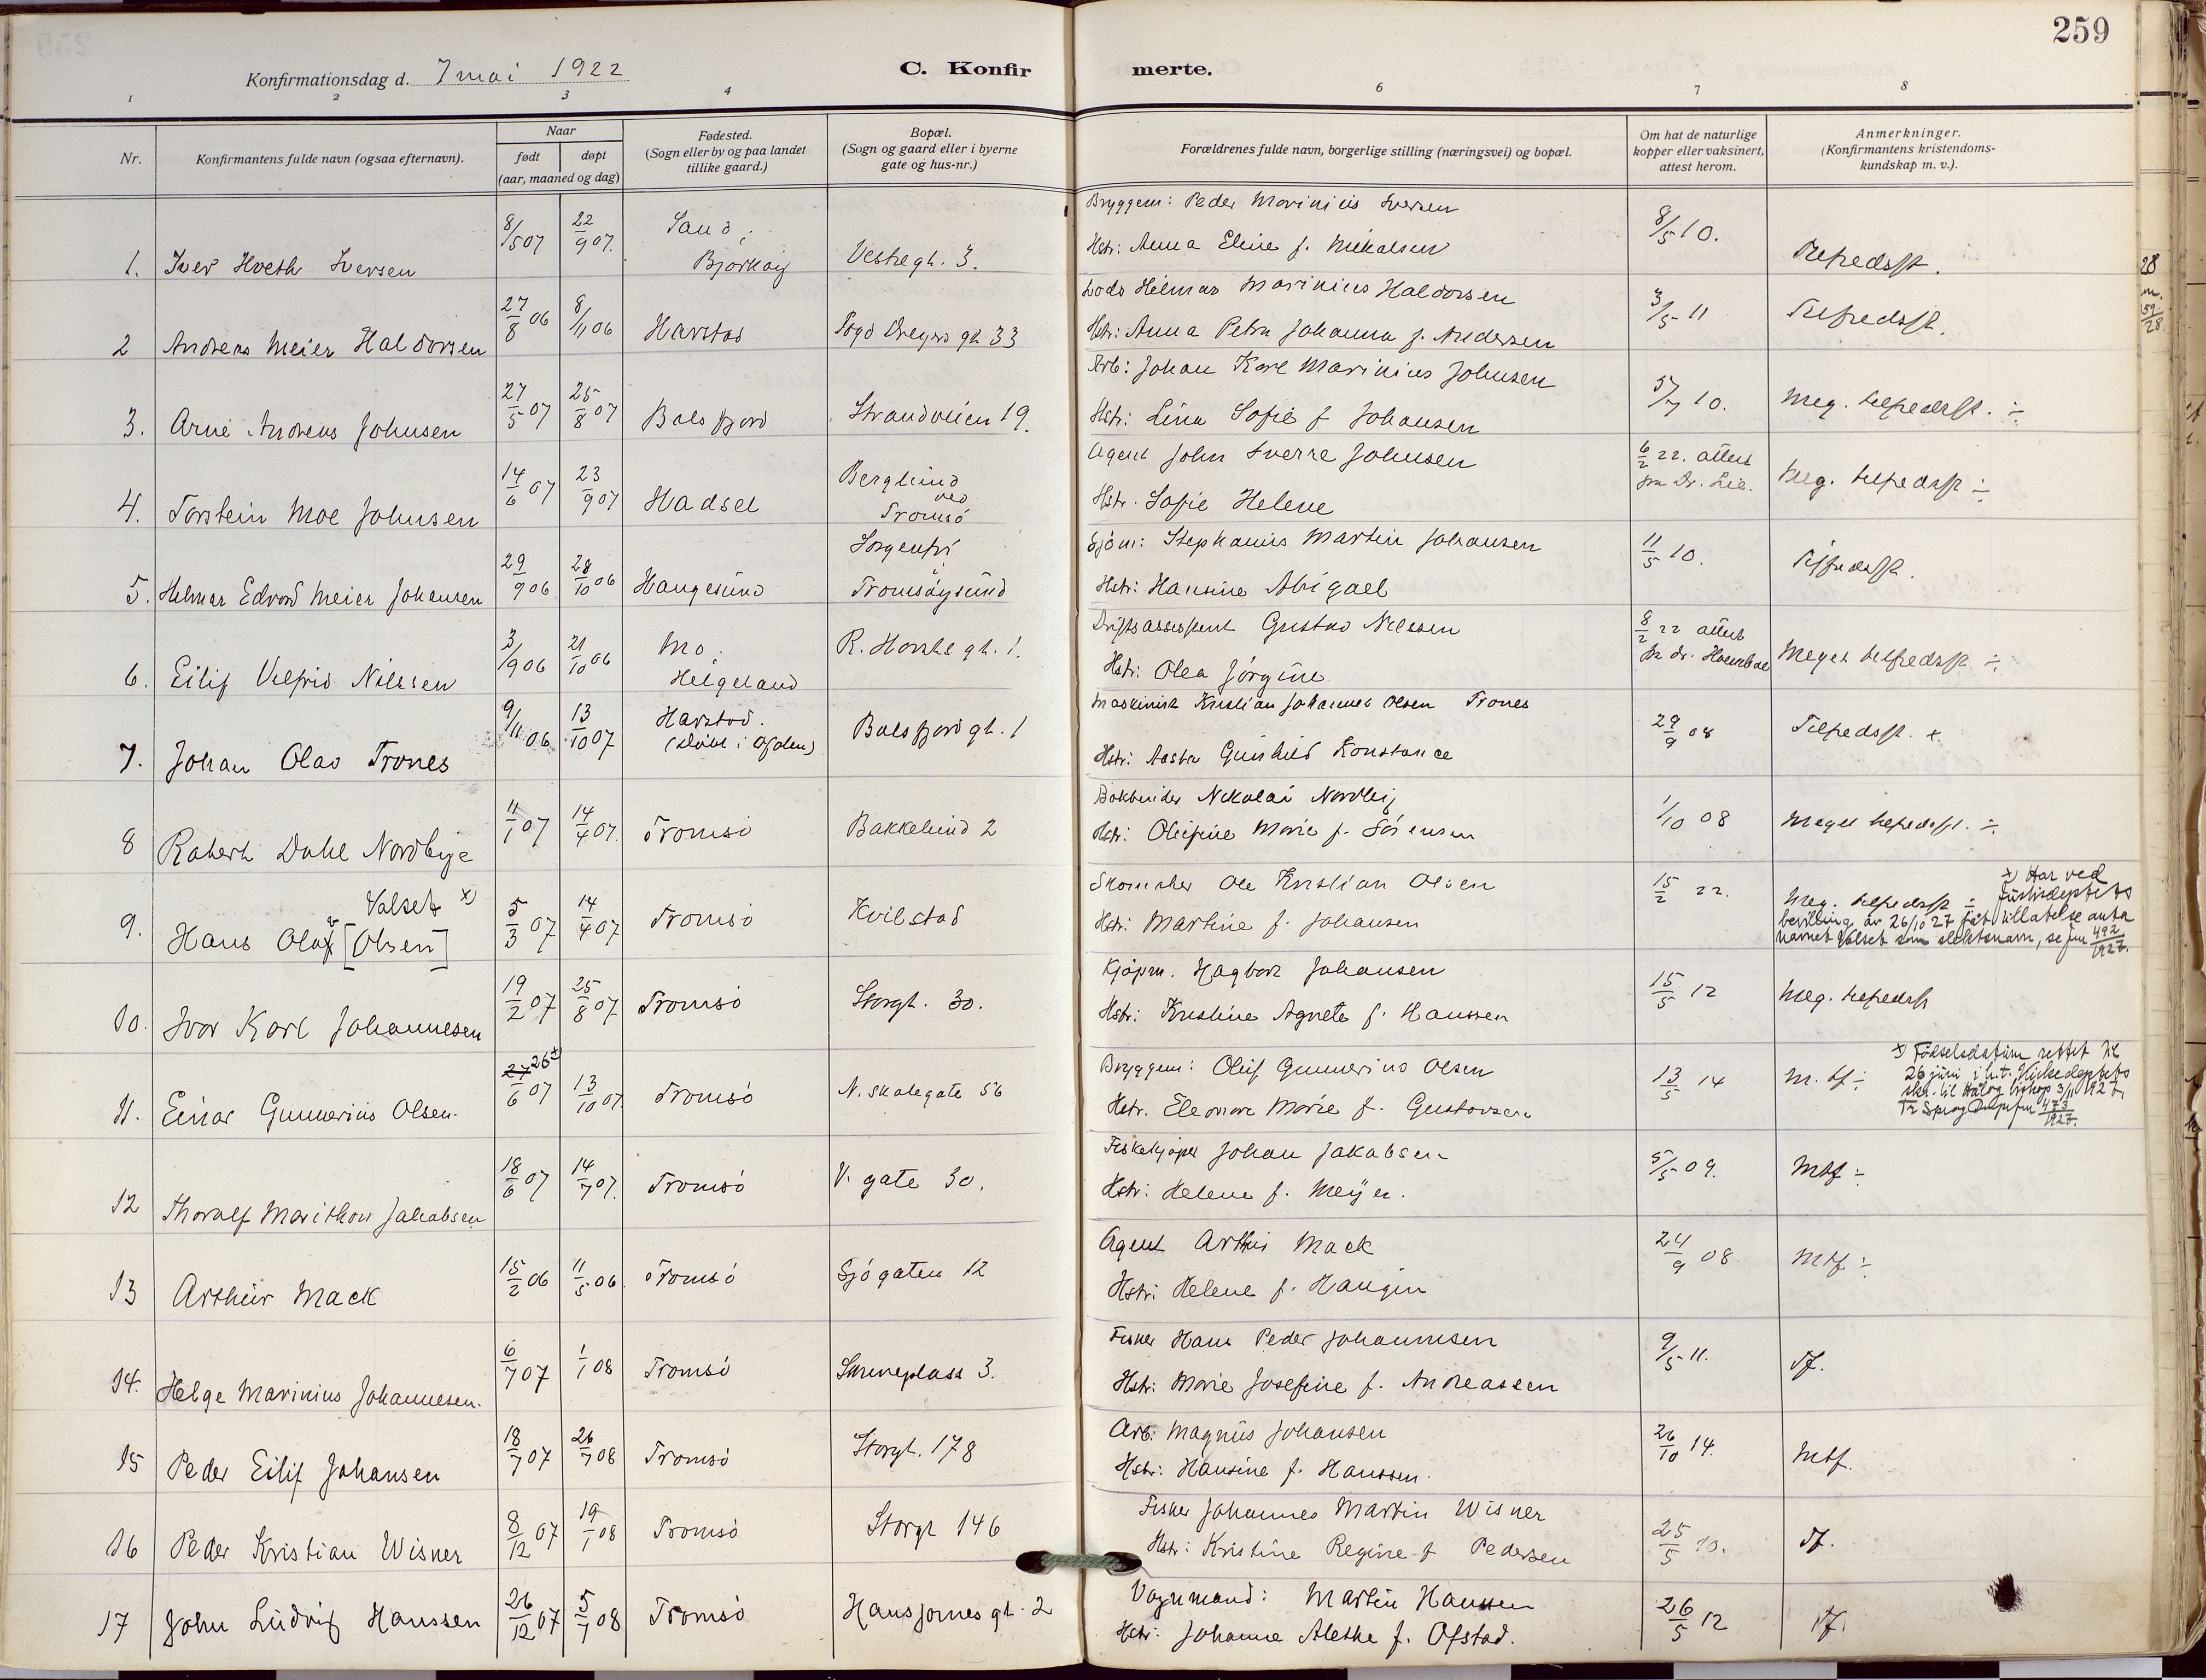 259
Konfirmationsdag d. 7 mai 1922
C. Konfirmerte.
1 2 3 4 6 7 8
Nr.
Konfirmantens fulde navn (ogsaa efternavn).
Naar
født døpt
(aar, maaned og dag)
Fødested.
(Sogn eller by og paa landet
tillike gaard.)
Bopæl.
(Sogn og gaard eller i byerne
gate og hus-nr.)
Forældrenes fulde navn, borgerlige stilling (næringsvei) og bopæl.
Om hat de naturlige
kopper eller vaksinert,
attest herom.
Anmerkninger.
(Konfirmantens kristendoms-
kundskap m. v.).
Bryggem: Peder Marinius Iversen
1. Iver Hveth Iversen 8/5 07 22/9 07. Sand, Bjarkøy Vestregt. 3. Hstr: Anna Eline f. Mikalsen 8/5 10. Tilfredsst.
Lods Hilmar Marinius Haldorsen
2 Andreas Meier Haldorsen 27/8 06 8/11 06 Harstad gt 33 Hstr: Anna Petra Johanna f. Andersen 3/5 11 Tilfredsst.
Arb: Johan Karl Marinius Johnsen
3. Arne Andreas Johnsen 27/5 07 25/8 07 Balsfjord Strandveien 19. Hstr: Lina Sofie f Johansen 5/7 10. Meg. tilfredsst. ÷
Agent John Sverre Johnsen
4. Torstein Moe Johnsen 14/6 07 23/9 07 Hadsel Berglund ved Tromsö Hstr. Sofie Helene 6/2 22. attest fra Dr. Lie. Meg. tilfredsst ÷
Sjöm: Stephanus Martin Johansen
5. Helmar Edvard Meier Johansen 29/9 06 28/10 06 Haugesund Sorgenfri i Tromsöysund Hstr: Hansine Abigael 11/5 10. Tilfredsst.
Driftsassistent Gustav Nilssen
6. Eilif Vilfrid Nilssen 3/9 06 21/10 06 Mo, Helgeland R. Horsts gt. 1. Hstr: Olea Jörgine 8/2 22 attest fra dr. Meget tilfredsst ÷
Maskinist Kristian Johannes Olsen Trones
7. Johan Olav Trones 9/11 06 13/10 07 Harstad. (döbt i Ofoten) Balsfjordgt. 1 Hstr: Aasta Gunhild Konstance 29/9 08 Tilfredsst. x
Bokbinder Nikolai Nordby
8 Robert Dahl Nordbye 11/1 07 14/4 07. Tromsö Bakkelund 2 Hstr: Olufine Marie f. Sörensen 1/10 08 Meget tilfredsst. ÷
Skomaker Ole Kristian Olsen
9. Hans Olav [Olsen] Valset x) 5/3 07 14/4 07 Tromsö Kvilstad Hstr: Martine f. Johansen 15/2 22. Meg. tilfredsst ÷
x) Har ved
Justisdeptets
bevilling av 26/10 27 fåt tillatelse anta
navnet Valset som slektsnavn, se jnr 492/1927.
Kjöpm. Hagbart Johansen
10. Ivar Karl Johannesen 19/2 07 25/8 07 Tromsö Storgt. 30. Hstr: Kristine Agnete f. Hanssen 15/5 12 Meg. tilfredsst
Bryggem: Oluf Gunnerius Olsen
11. Einar Gunnerius Olsen. 27 26 x)/6 07 13/10 07 Tromsö N. Skolegate 56 Hstr. Eleonore Marie f. Gustavsen 13/5 14 M. tf ÷
x) Födselsdatum rettet til
26 juni i h.t. Kirkedeptets
skr. til Hålog. biskop 3/11 1927,
473/1927.
Fiskekjöper Johan Jakobsen
12 Thoralf Marithon Jakobsen 18/6 07 14/7 07. Tromsö V. gate 30. Hstr: Helene f. Meyer. 5/5 09. Mtf ÷
Agent Arthur Mack
13 Arthur Mack 15/2 06 11/5 06. Tromsö Sjögaten 12 Hstr: Helene f. Haugin 24/9 08. Mtf ÷
Fisker Hans Peder Johannesen
14. Helge Marinius Johannesen. 6/7 07 1/1 08 Tromsö 3. Hstr: Marie Josefine f. Andreassen 9/5 11. Tf.
Arb: Magnus Johansen
15 Peder Eilif Johansen 18/7 07 26/7 08 Tromsö Storgt. 178 Hstr: Hansine f. Hanssen. 26/10 14. Mtf.
Fisker Johannes Martin Wisner
16 Peder Kristian Wisner 8/12 07 19/1 08 Tromsö Storgt 146 Hstr: Kristine Regine f Pedersen 25/5 10. Tf.
Vognmand: Martin Hanssen
17 John Ludvig Hanssen 26/12 07 5/7 08 Tromsö Hansjordnesgt. 2 Hstr: Johanne Alethe f. Ofstad. 26/5 12 Tf.